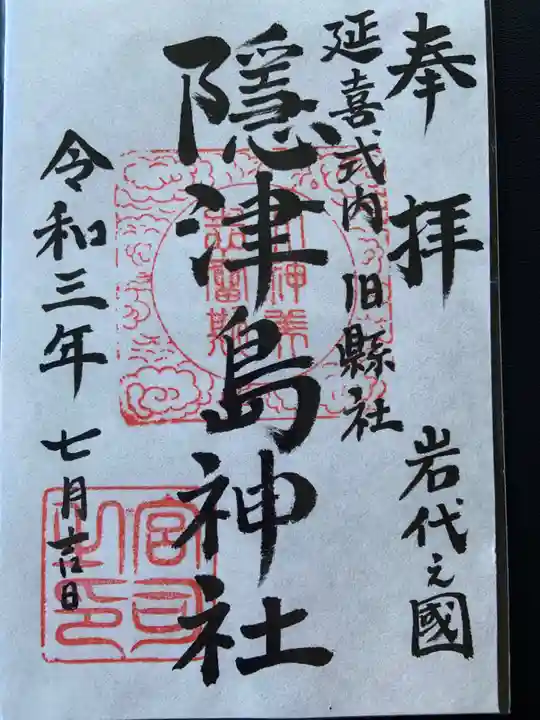 奉拝
岩代之國
延喜式内 旧縣社
隠津島神社
令和三年 七月吉日
宮司之印